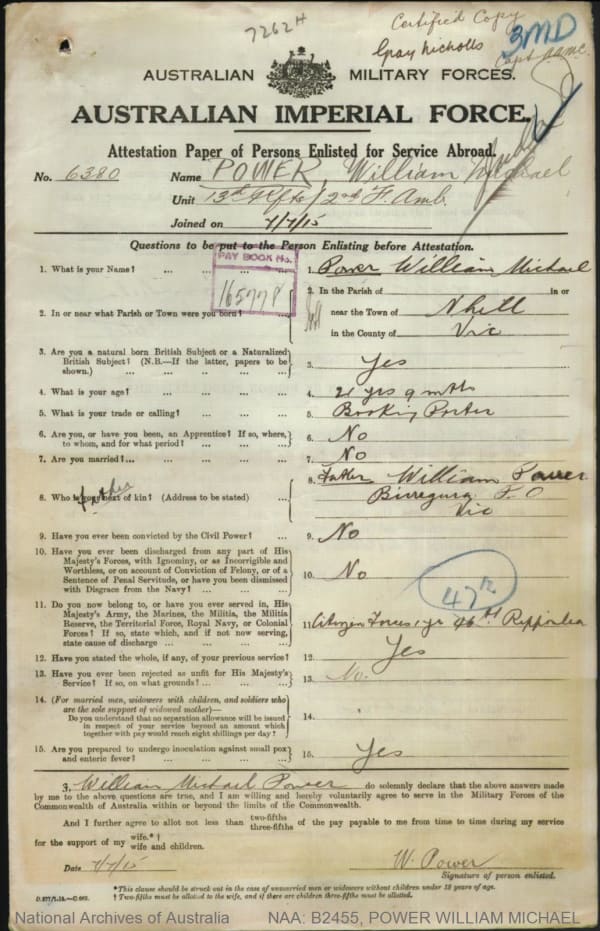 7262H
Certified Copy
Gray Nicholls
3MD
Capt AAMC
AUSTRALIAN MILITARY FORCES.
AUSTRALIAN IMPERIAL FORCE.
Attestation Paper of Persons Enlisted for Service Abroad.
No. 6380 Name POWER, William Michael
Unit 13th Rfts / 2nd F. Amb.
Joined on 7/7/15
Questions to be put to the Person Enlisting before Attestation.
PAY BOOK No.
165778
1. What is your Name? ... ... ... 1. Power William Michael
2. In or near what Parish or Town were you born? ... 2. In the Parish of in or
near the Town of Nhill
in the County of Vic
3. Are you a natural born British Subject or a Naturalized
British Subject? (N.B.—If the latter, papers to be
shown.) ... ... ... 3. Yes
4. What is your age? ... ... ... 4. 21 yrs 9 mths
5. What is your trade or calling? ... ... ... 5. Booking Porter
6. Are you, or have you been, an Apprentice? If so, where,
to whom, and for what period? ... ... 6. No
7. Are you married? ... ... ... 7. No
8. Who is your next of kin? (Address to be stated) ... 8. Father William Power
father
Birregurra P.O
Vic
9. Have you ever been convicted by the Civil Power? ... 9. No
10. Have you ever been discharged from any part of His
Majesty's Forces, with Ignominy, or as Incorrigible and
Worthless, or on account of Conviction of Felony, or of a
Sentence of Penal Servitude, or have you been dismissed
with Disgrace from the Navy? ... ... 10. No
47
11. Do you now belong to, or have you ever served in, His
Majesty's Army, the Marines, the Militia, the Militia
Reserve, the Territorial Force, Royal Navy, or Colonial
Forces? If so, state which, and if not now serving,
state cause of discharge ... ... ... 11. Citizen Forces 1 yr 46th
12. Have you stated the whole, if any, of your previous service? 12. Yes
13. Have you ever been rejected as unfit for His Majesty's
Service? If so, on what grounds? ... ... 13. No.
14. (For married men, widowers with children, and soldiers who
are the sole support of widowed mother)—
Do you understand that no separation allowance will be issued
in respect of your service beyond an amount which
together with pay would reach eight shillings per day? 14.
15. Are you prepared to undergo inoculation against small pox
and enteric fever? ... ... ... 15. Yes
I, William Michael Power do solemnly declare that the above answers made
by me to the above questions are true, and I am willing and hereby voluntarily agree to serve in the Military Forces of the
Commonwealth of Australia within or beyond the limits of the Commonwealth.
And I further agree to allot not less than two-fifths three-fifths of the pay payable to me from time to time during my service
for the support of my wife.*† wife and children.
Date 7/7/15 W. Power
Signature of person enlisted.
*This clause should be struck out in the case of unmarried men or widowers without children under 18 years of age.
† Two-fifths must be allotted to the wife, and if there are children three-fifths must be allotted.
National Archives of Australia NAA: B2455, POWER WILLIAM MICHAEL